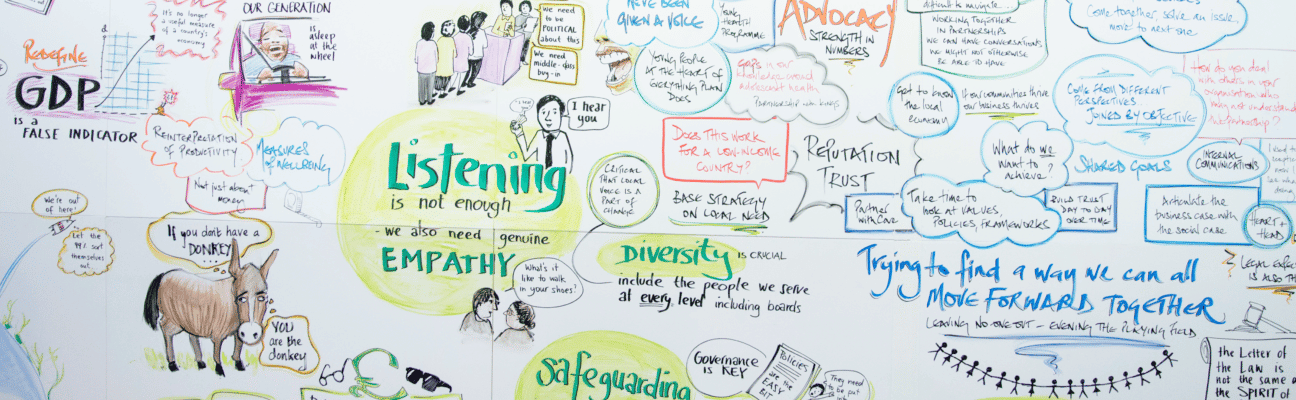 It's no longer
a useful measure
of a country's
economy
REDEFINE
GDP
is a
FALSE INDICATOR
OUR GENERATION
is
asleep
at the
wheel
REINTERPRETATION
OF PRODUCTIVITY
MEASURES
OF WELLBEING
Not just about
money
We're out
of here!
Let the
99% sort
themselves
out
If you don't have a
DONKEY
...
YOU
are the
donkey
We need
to be
POLITICAL
about this
We need
middle-class
buy-in
I hear
you
Listening
is not enough
- we also need genuine
EMPATHY
What's it
like to walk
in your shoes?
CRITICAL
THAT LOCAL
VOICE IS A
PART OF
CHANGE
HAVE BEEN
GIVEN A VOICE
YOUNG
HEALTH
PROGRAMME
YOUNG PEOPLE
AT THE HEART OF
EVERYTHING PLAN
DOES
ADVOCACY
STRENGTH IN
NUMBERS
GAPS in our
knowledge around
adolescent health
PARTNERSHIP WITH KINGS
DOES THIS WORK
FOR A LOW-INCOME
COUNTRY?
BASE STRATEGY
ON LOCAL NEED
Diversity IS CRUCIAL
include the people we serve
at every level including boards
Safeguarding
Governance
is KEY
Policies
are the
EASY
BIT
They need
to be put
difficult to navigate...
WORKING TOGETHER
IN PARTNERSHIPS
WE CAN HAVE CONVERSATIONS
WE MIGHT NOT OTHERWISE
BE ABLE TO HAVE
Come together, solve an issue,
move to next one
Got to know
the local
economy
If our communities thrive
our business thrives
COME FROM DIFFERENT
PERSPECTIVES
JOINED BY OBJECTIVE
How do you deal
with others in your
organisation who
may not understand
the partnership?
REPUTATION
TRUST
What do we
want to
achieve?
SHARED GOALS
INTERNAL
COMMUNICATIONS
Partner
with Care
Take time to
look at VALUES,
POLICIES, FRAMEWORKS
BUILD TRUST
DAY TO DAY
OVER TIME
Articulate the
business case with
the social case
HEART +
HEAD
Trying to find a way we can all
MOVE FORWARD TOGETHER
LEAVING NO-ONE OUT - EVENING THE PLAYING FIELD
LEGAL
IS ALSO
the Letter of
the Law is
not the same
the SPIRIT of